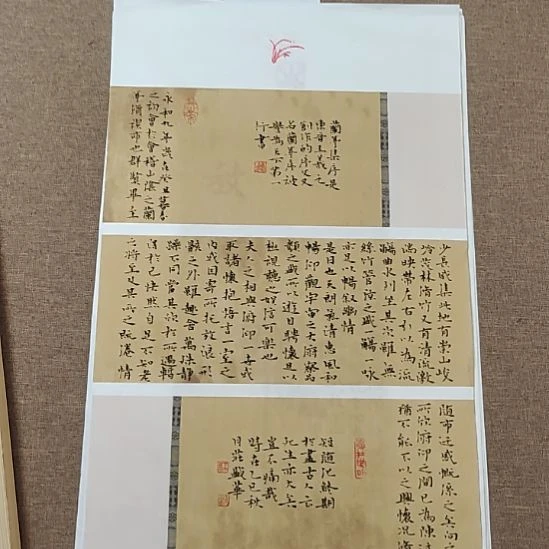 蘭亭集序是
東晉王羲之
創作的序文又
名蘭亭序被
譽為天下第一
行書
永和九年歲在癸丑暮春
之初會於會稽山陰之蘭
亭脩禊事也群賢畢至
少長咸集此地有崇山峻
領茂林脩竹又有清流激
湍映帶左右引以為流
觴曲水列坐其次雖無
絲竹管弦之盛一觴一詠
亦足以暢敘幽情
是日也天朗氣清惠風和
暢仰觀宇宙之大俯察品
類之盛所以遊目騁懷足以
極視聽之娛信可樂也
夫人之相與俯仰一世或
取諸懷抱悟言一室之
內或因寄所託放浪形
骸之外雖趣舍萬殊靜
躁不同當其欣於所遇暫
得於己快然自足不知老
之將至及其所之既倦情
隨事遷感慨係之矣向之
所欣俯仰之間已為陳
猶不能不以之興懷況脩
短隨化終期
於盡古人云
死生亦大矣
豈不痛哉
時在乙巳秋
月莊盛華